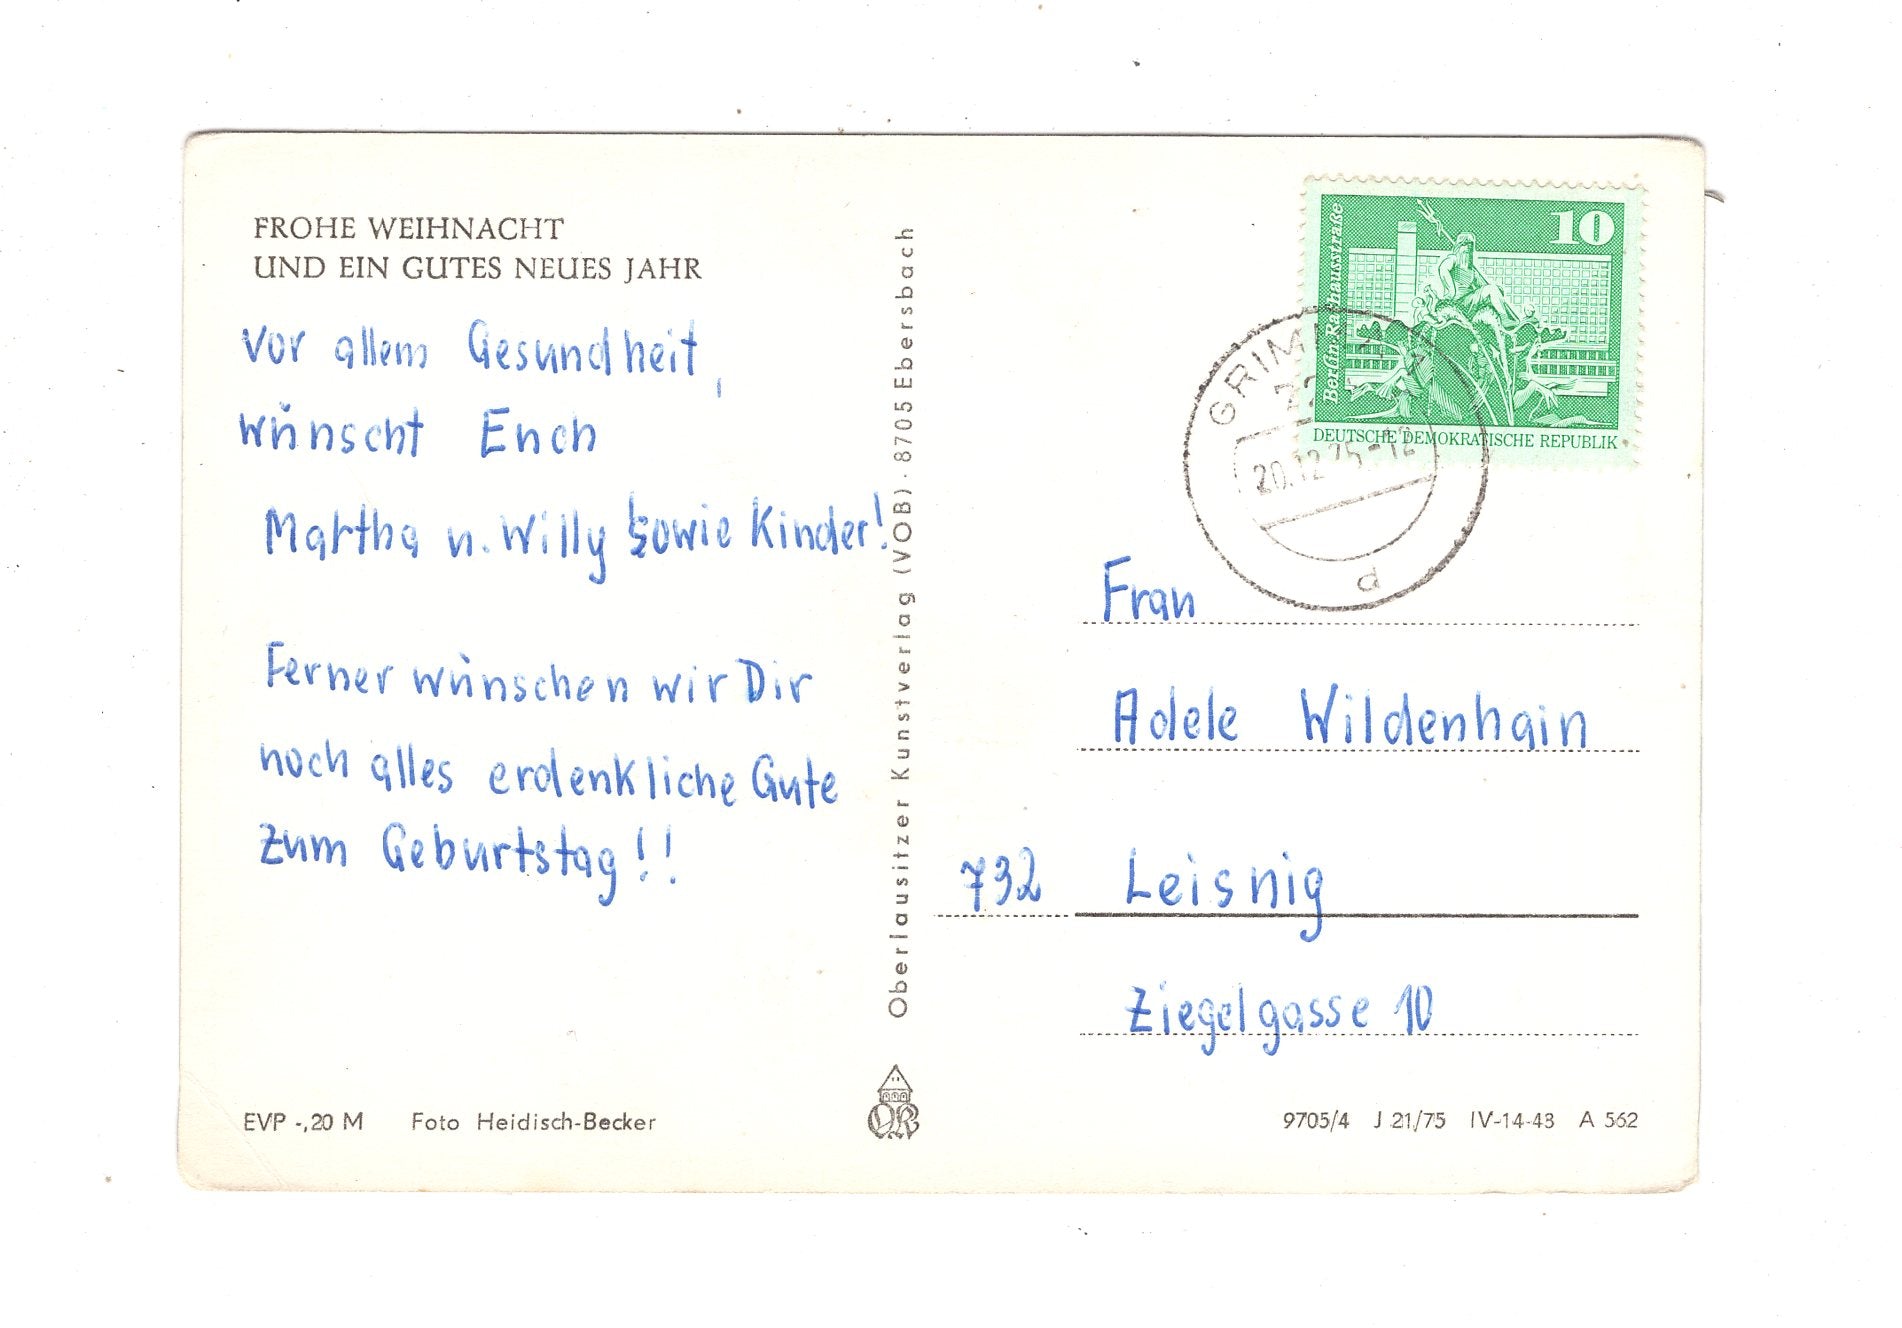 FROHE WEIHNACHT
UND EIN GUTES NEUES JAHR
vor allem Gesundheit,
wünscht Euch
Martha u. Willy sowie Kinder!
Ferner wünschen wir Dir
noch alles erdenkliche Gute
zum Geburtstag!!
EVP -,20 M Foto Heidisch-Becker
Oberlausitzer Kunstverlag (VOB) · 8705 Ebersbach
10
Berlin·Rathausstraße
DEUTSCHE DEMOKRATISCHE REPUBLIK
20.12.75-12
d
Frau
Adele Wildenhain
732 Leisnig
Ziegelgasse 10
9705/4 J 21/75 IV-14-48 A 562